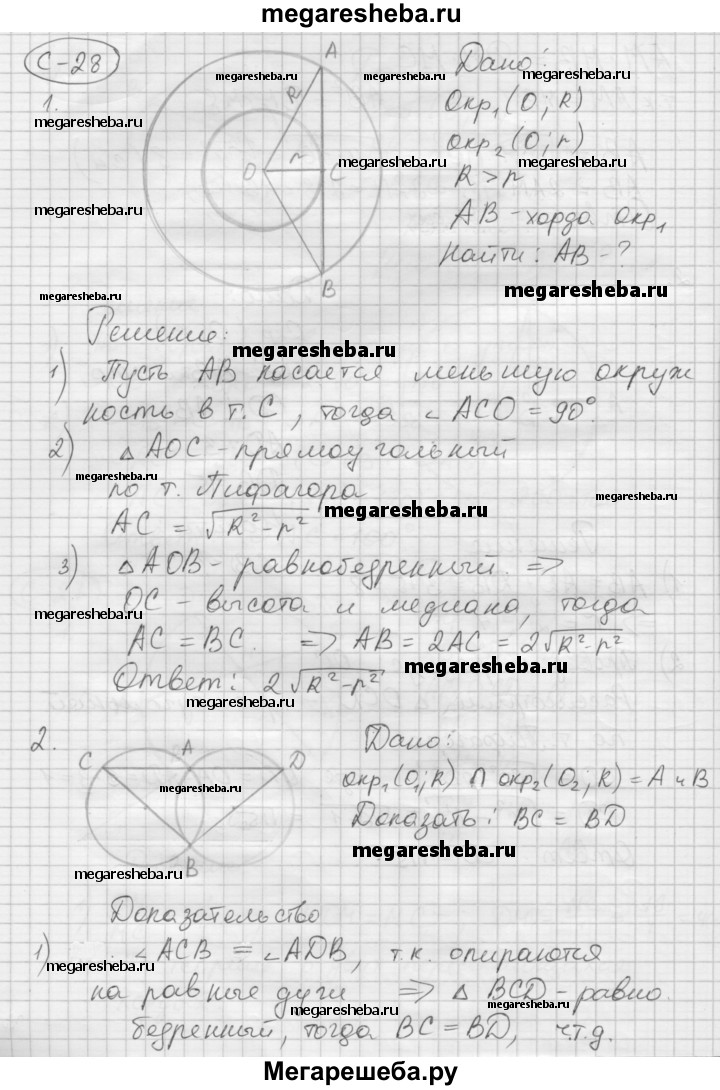 megaresheba.ru
С-28
1.
A
megaresheba.ru
megaresheba.ru
Дано:
megaresheba.ru
R
Окр₁(O; R)
megaresheba.ru
окр₂(O; r)
O
r
C
megaresheba.ru
megaresheba.ru
R > r
megaresheba.ru
AB - хорда окр₁
Найти: AB - ?
B
megaresheba.ru
megaresheba.ru
Решение:
megaresheba.ru
1) Пусть AB касается меньшую окруж
ность в т. C, тогда ∠ACO = 90°.
2) △AOC - прямоугольный
megaresheba.ru
по т. Пифагора
megaresheba.ru
AC = √R² - r²
megaresheba.ru
3) △AOB - равнобедренный. ⇒
OC - высота и медиана, тогда
megaresheba.ru
AC = BC. ⇒ AB = 2AC = 2√R² - r²
megaresheba.ru
Ответ: 2√R² - r²
megaresheba.ru
2.
C A D
Дано:
окр₁(O₁; R) ∩ окр₂(O₂; R) = A и B
megaresheba.ru
Доказать: BC = BD
B
megaresheba.ru
megaresheba.ru
Доказательство
1) ∠ACB = ∠ADB, т.к. опираются
megaresheba.ru
на равные дуги ⇒ △ BCD - равно
megaresheba.ru
megaresheba.ru
бедренный, тогда BC = BD, ч.т.д.
Мегарешеба.ру